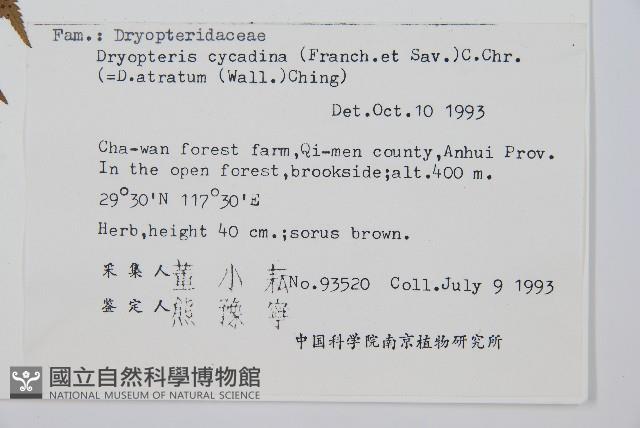 Fam.: Dryopteridaceae
Dryopteris cycadina (Franch.et Sav.)C.Chr.
(=D.atratum (Wall.)Ching)
Det.Oct.10 1993
Cha-wan forest farm,Qi-men county,Anhui Prov.
In the open forest,brookside;alt.400 m.
29°30'N 117°30'E
Herb,height 40 cm.;sorus brown.
采集人 董小 No.93520 Coll.July 9 1993
鉴定人 熊豫宁
中国科学院南京植物研究所
國立自然科學博物館
NATIONAL MUSEUM OF NATURAL SCIENCE